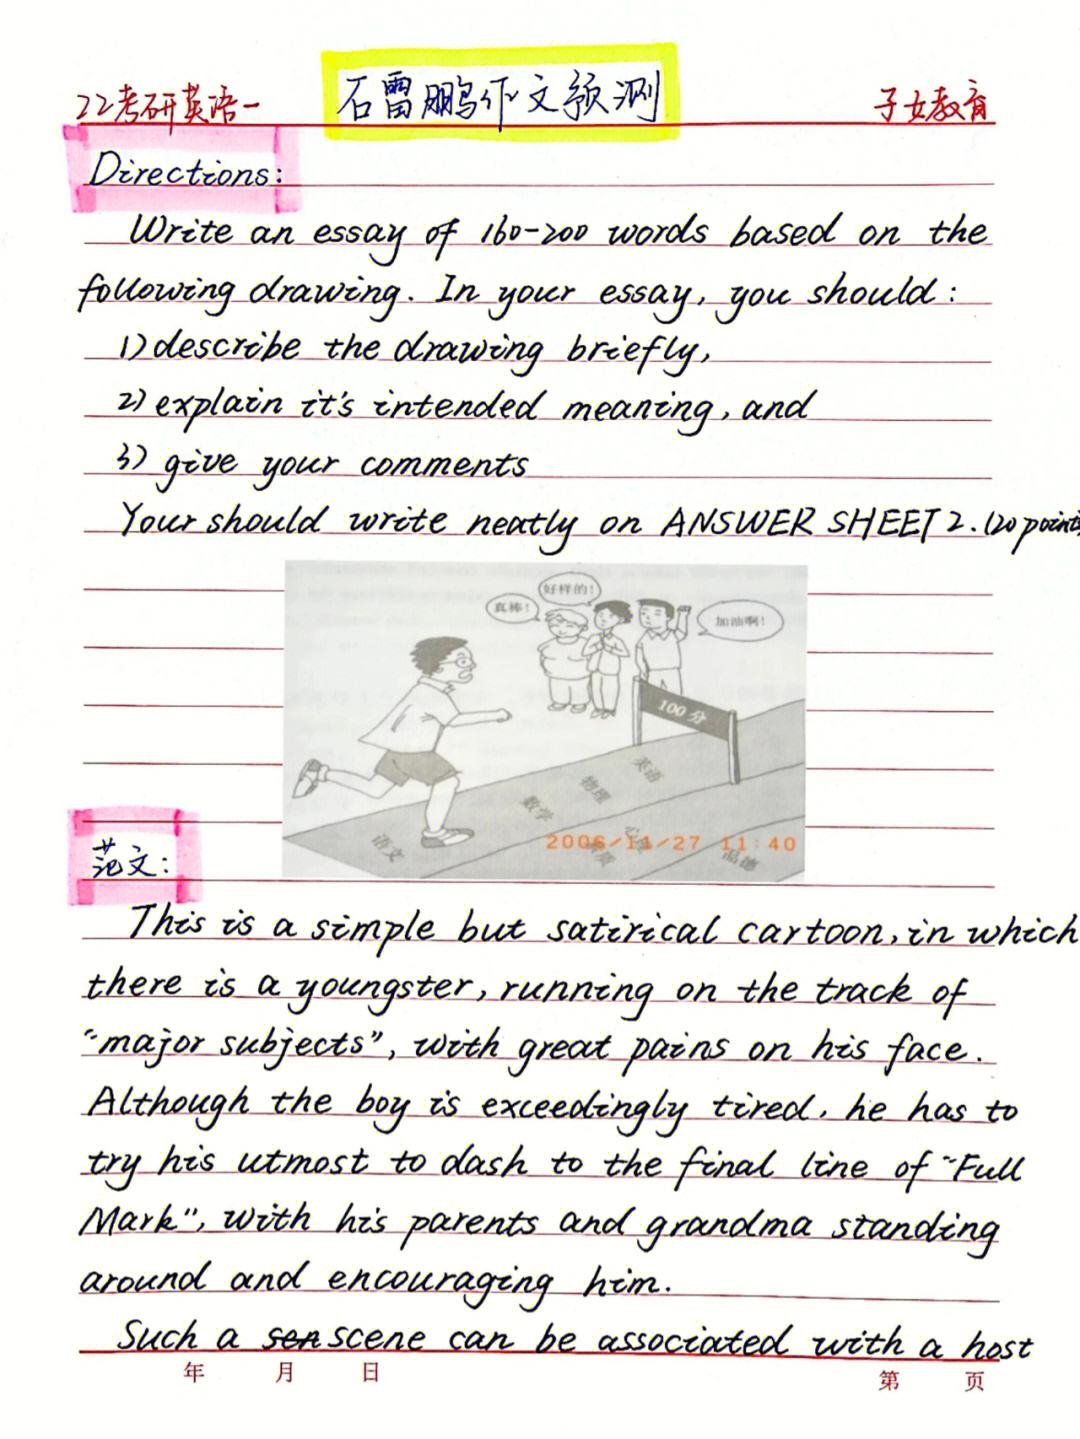 22考研英语一
石雷鹏作文预测
子女教育
Directions:
Write an essay of 160-200 words based on the
following drawing. In your essay, you should:
1) describe the drawing briefly,
2) explain it's intended meaning, and
3) give your comments
Your should write neatly on ANSWER SHEET 2. (20 points
好样的!
真棒!
加油啊!
100分
英语
物理
数学
语文
心理
素质
品德
2006/11/27 11:40
范文:
This is a simple but satirical cartoon, in which
there is a youngster, running on the track of
"major subjects", with great pains on his face.
Although the boy is exceedingly tired, he has to
try his utmost to dash to the final line of "Full
Mark", with his parents and grandma standing
around and encouraging him.
Such a scene can be associated with a host
年 月 日
第 页